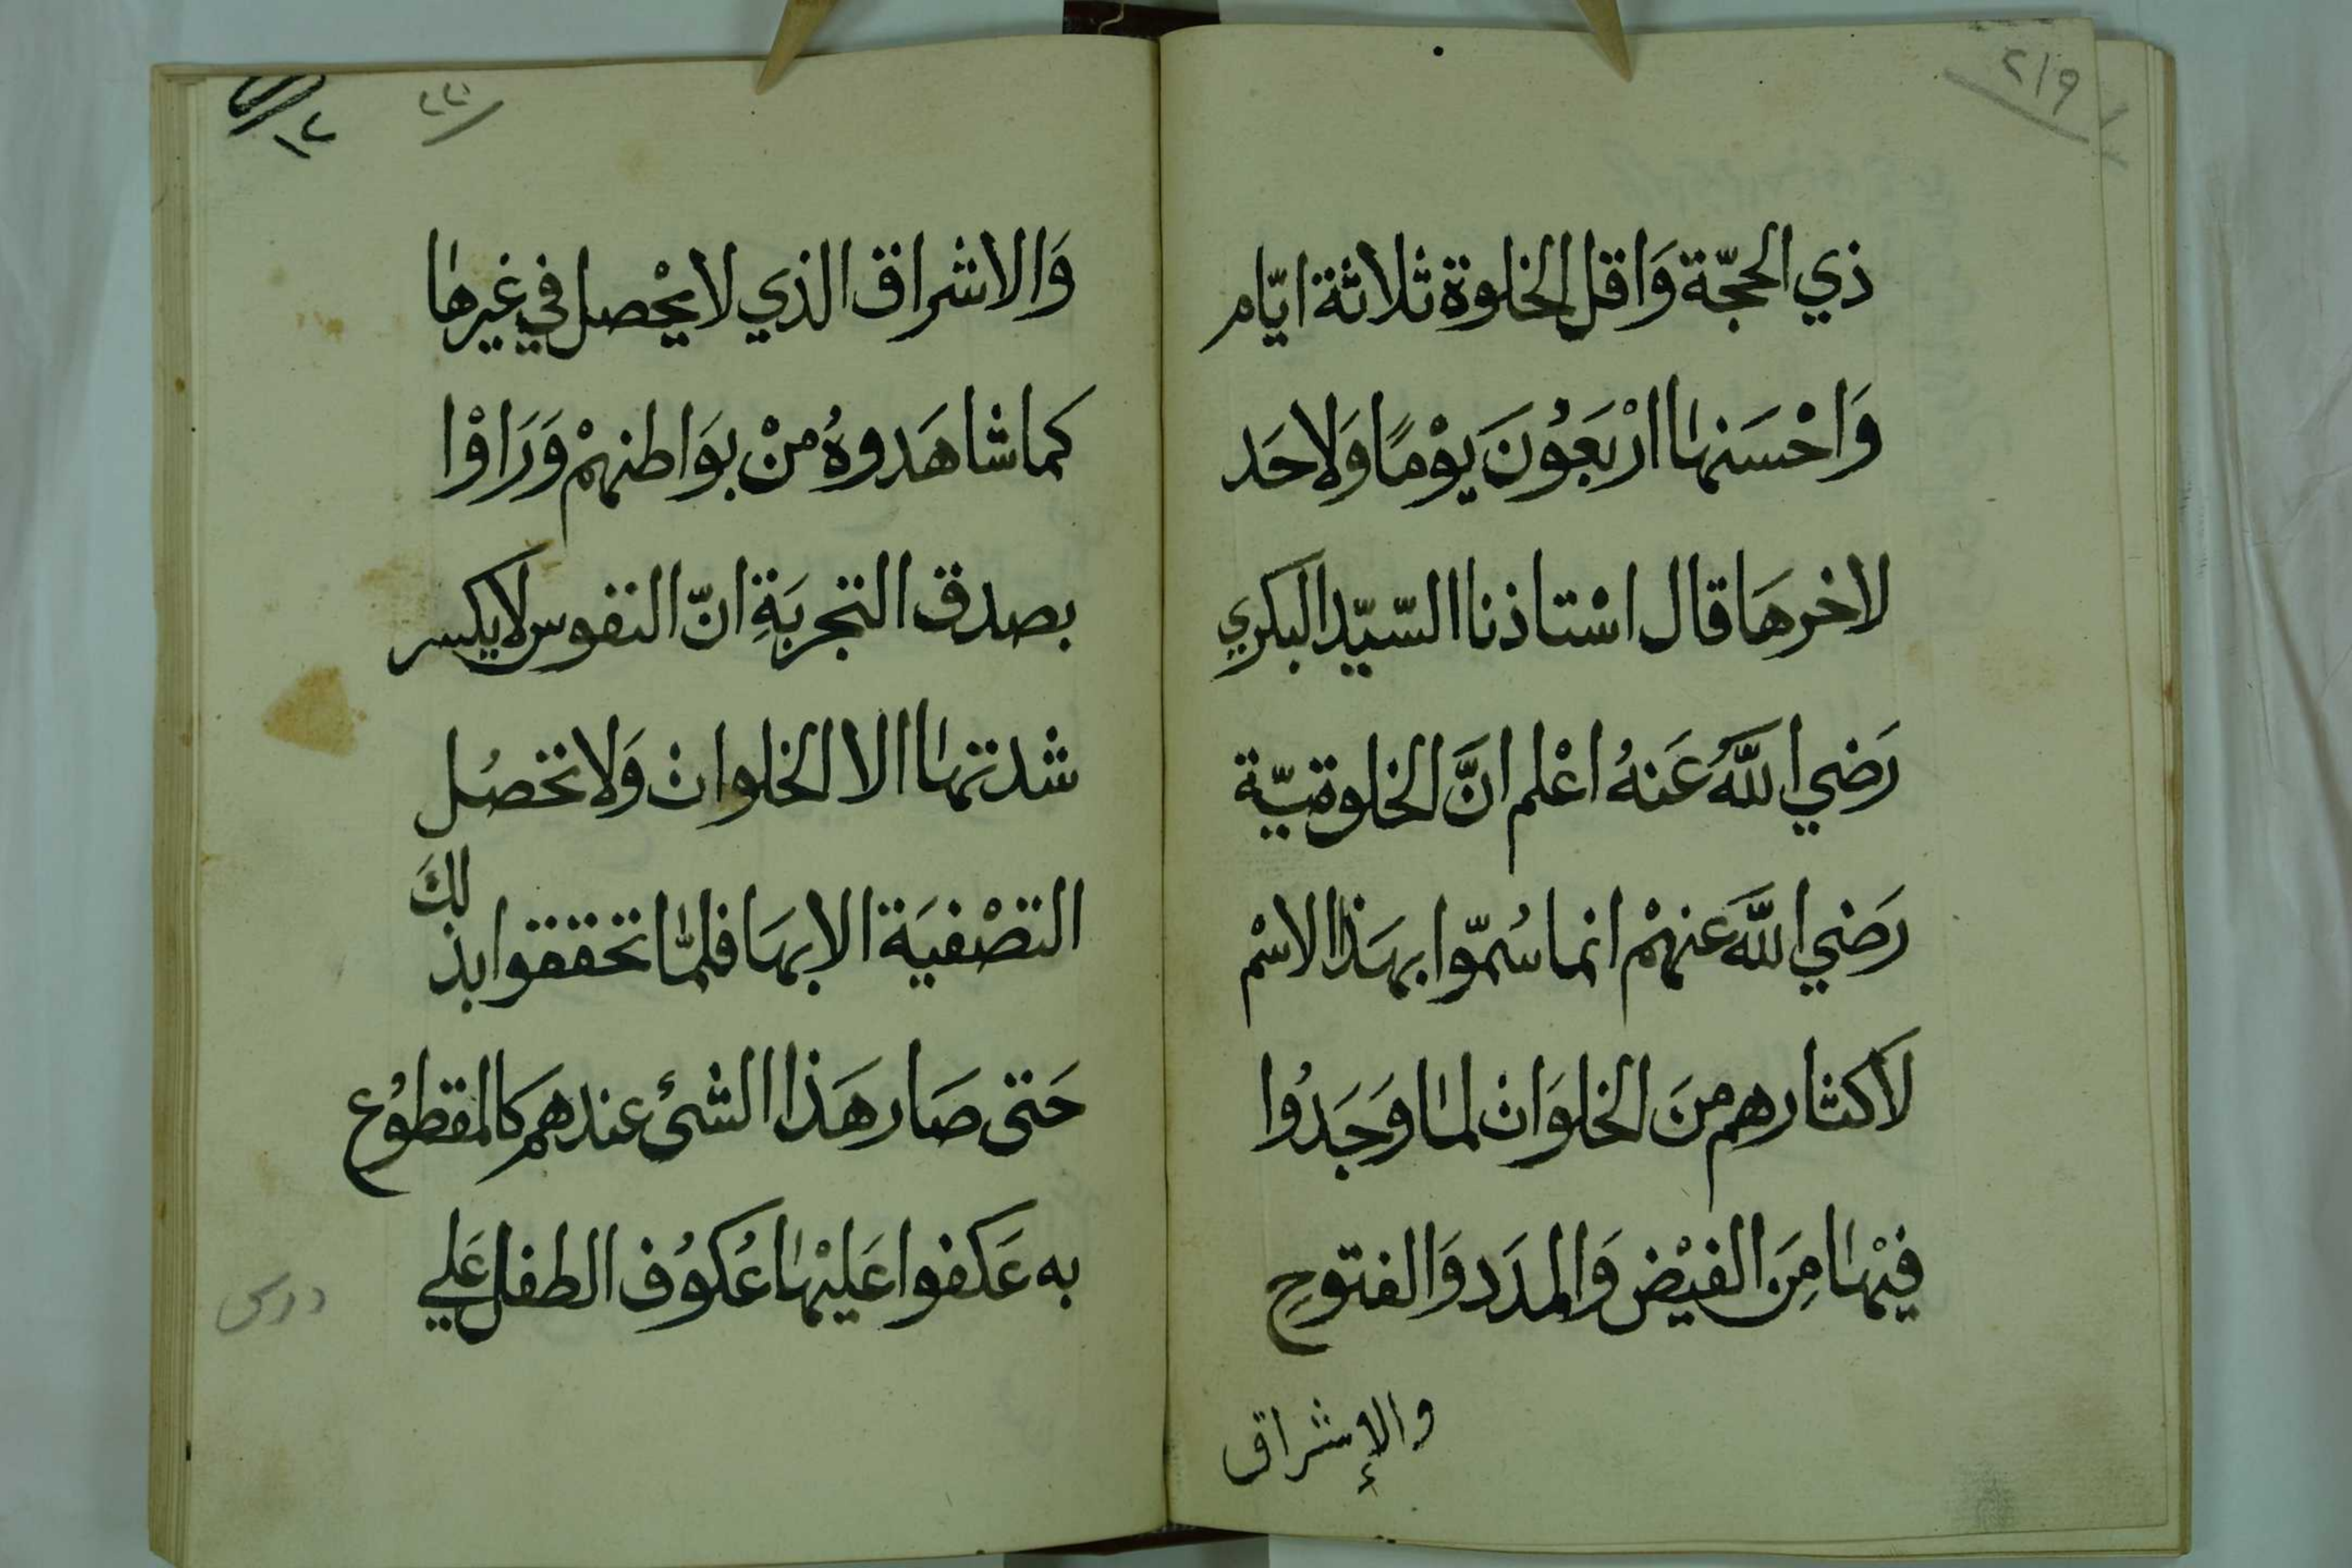 ٢١٩
ذي الحجّة وَاقل الخلوة ثلاثة ايّام
وَاحْسَنها ارْبَعُونَ يوْمًا وَلاحَد
لاخرهَا قال اسْتاذنا السّيّد البكري
رَضي اللَّهُ عَنهُ اعْلم انَّ الخلوتيّة
رَضي اللَّه عَنهمْ انما سُمّوا بهَذا الاسْم
لاكثارهم منَ الخلوَات لما وَجَدُوا
فيْها مِنَ الفيْض وَالمدَد وَالفتوحِ
والإشراق
٢٢٠
١٢
وَالاشراق الذي لا يحْصل في غيرها
كما شاهَدوهُ منْ بوَاطنهمْ وَرَاوْا
بصدق التجربَةِ انّ النفوس لا يكسر
شدتها الا الخلوات وَلا تحصُل
التصْفيَة الا بهَا فلمّا تحققوا بذلكَ
حَتى صَار هَذا الشئ عندهم كالمقطوُع
به عَكفوا عَليْها عُكوُف الطفل عَلي